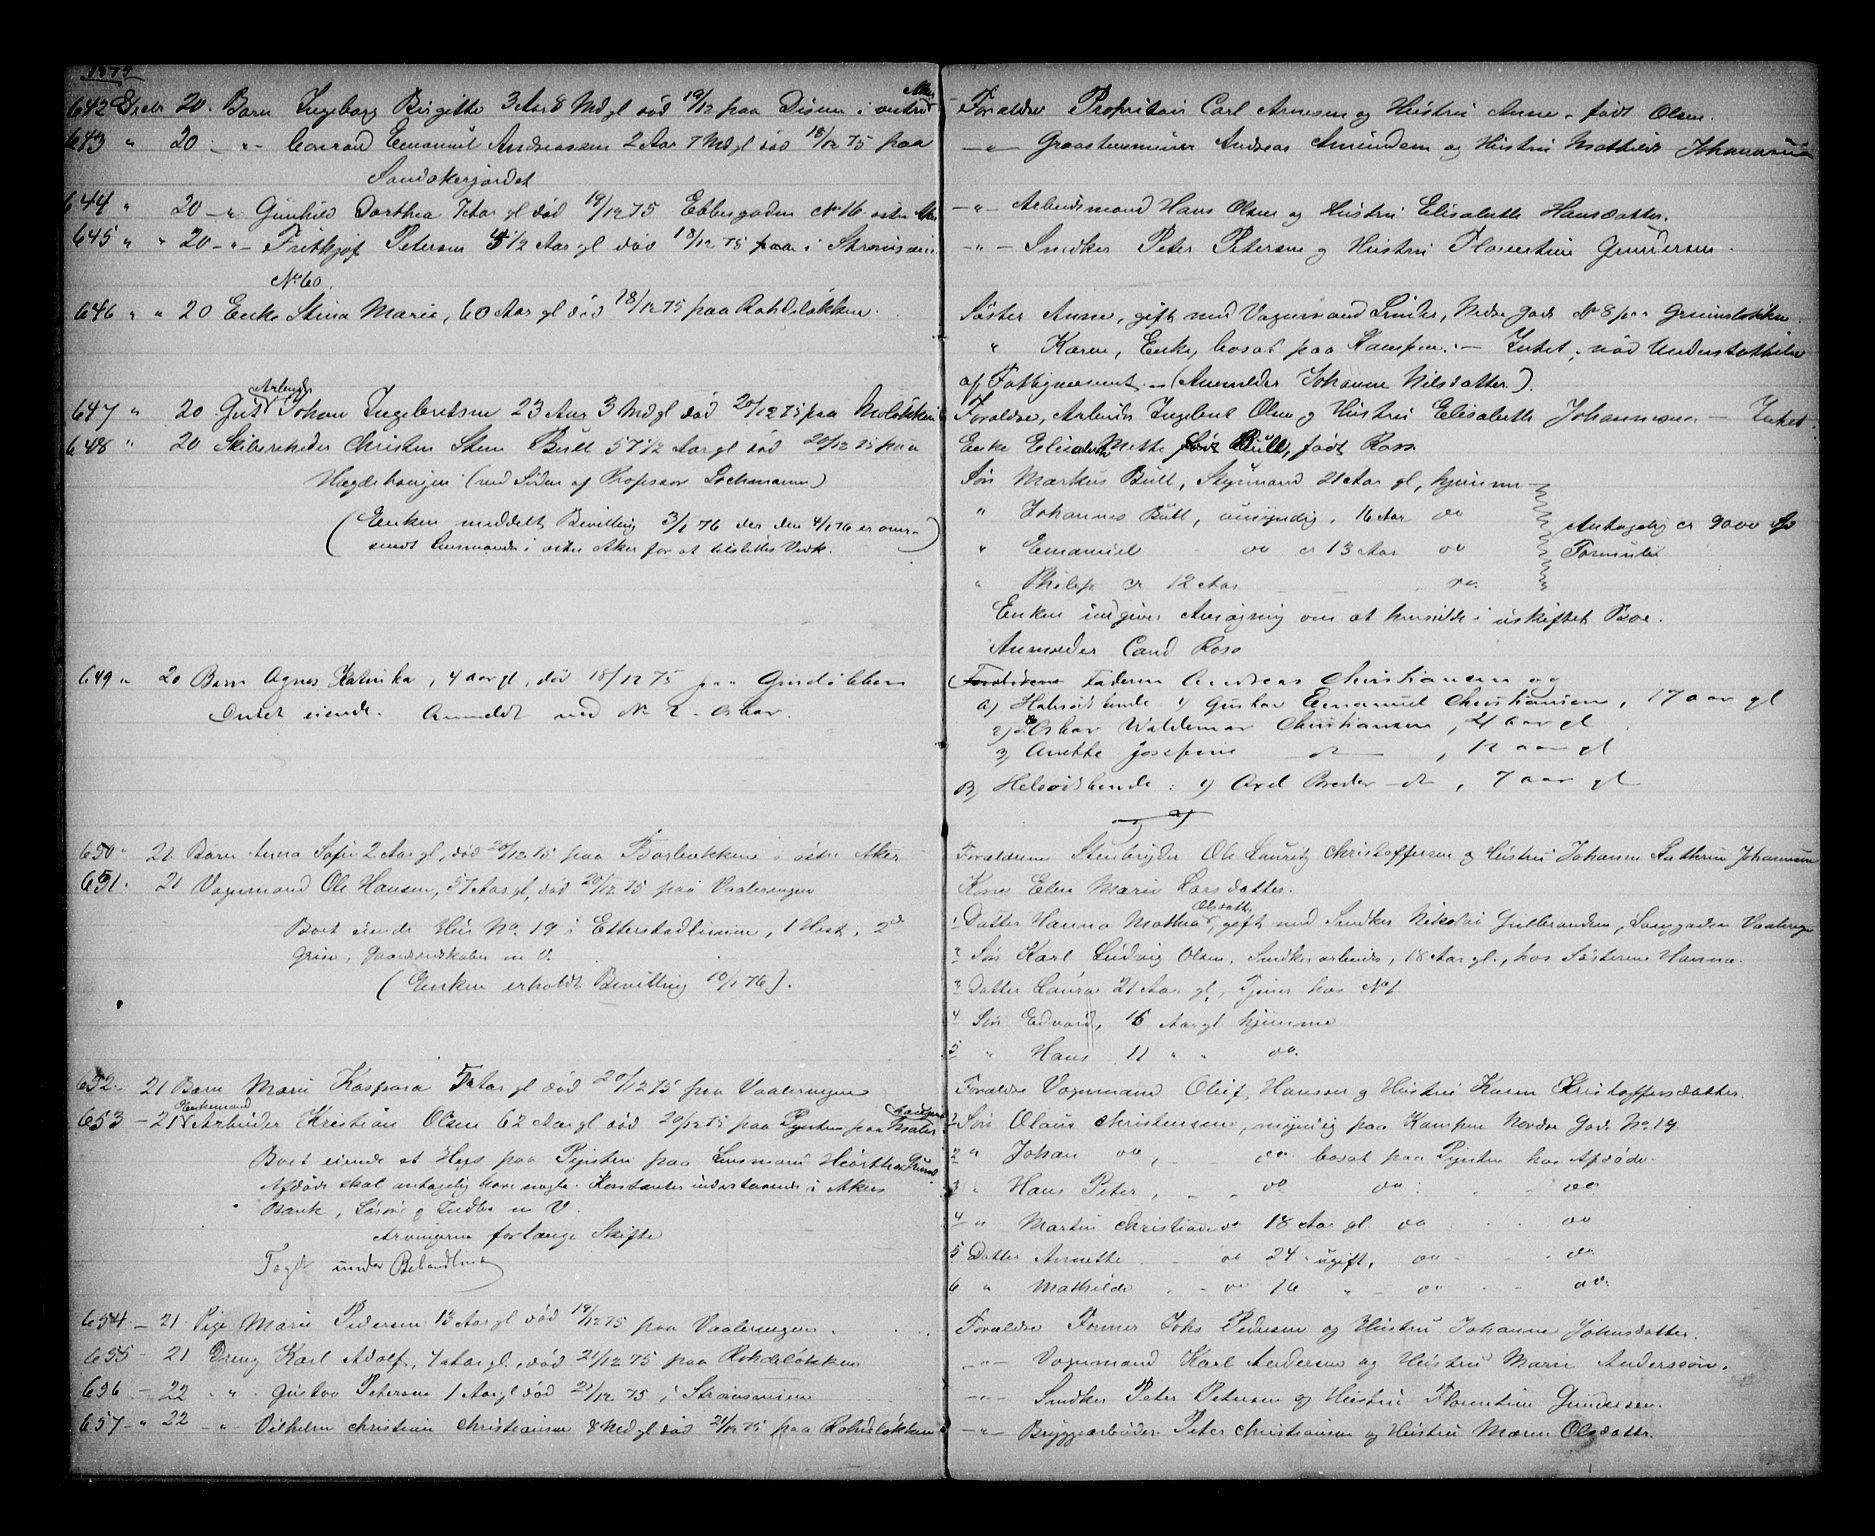 1875
642 Decbr 20. Barn Ingeborg Birgitte 3 Aar 8 Md gl død 19/12 paa Disen i østre Aker
643 " 20 -"- Conrad Emanuel Andreassen 2 Aar 7 Md gl død 18/12 75 paa
Sandakerjordet
644 " 20 -"- Gunhild Dorthea 7 Aar gl død 19/12 75 Ebbesgaden No 16 østre Aker
645 " " 20 -"- Frithjof Petersen 4 1/2 Aar gl død 18/12 75 paa i Strømsveien
No 60.
646 " " 20 Enke Stina Marie, 60 Aar gl død 18/12 75 paa Rohdeløkken.
647 " 20. Gut Arbeider Johan Ingebretsen 23 Aar 3 Md gl død 20/12 75 paa
648 " 20 Skibsrheder Christen Steen Bull 57 1/2 Aar gl død 20/12 75 paa
Hægdehaugen (ved Siden af Professor Lochmann)
(Enken meddelt Bevilling 3/1 76 der den 4/1 76 er over-
sendt Lensmanden i østre Aker for at tilstilles Vedk.
649 " 20 Barn Agnes Katinka, 4 aar gl, død 18/12 75 paa
Intet eiende. Anmeldt ved No 2. Oskar.
650 " 21 Barn Anna Sofie 2 Aar gl, død 20/12 75 paa Torbakken i østre Aker
651. 21 Vognmand Ole Hansen, 57 Aar gl, død 20/12 75 paa Vaalerengen
Boet eiende Hus No 19 i Etterstadlinien, 1 Hest, 2de
Grise, Gaardsredskaber m V.
(Enken erholdt Bevilling 10/1 76).
652 - 21 Barn Marie Kaspara 7 Aar gl død 20/12 75 paa Vaalerengen
653 - 21 Enkemand Arbeider Kristian Olsen 62 Aar gl død 20/12 75 paa Pynten paa
Boet eiende et Hus paa Pynten paa Lensmand Hiorths Grund.
Afdøde skal antagelig have nogle Kontanter indestaaende i Akers
Bank, Løsøre og Indbo m V.
Arvingerne forlange Skifte
Taget under Behandling
654 - 21 Pige Marie Pedersen 13 Aar gl død 19/12 75 paa Vaalerengen.
655 - 21 Dreng Karl Adolf, 4 Aar gl, død 21/12 75 paa Rohdeløkken
656 - 22 " Gustav Petersen 1 Aar gl død 21/12 75 i Strømsveien
657 - " 22 -"- Vilhelm Christian Christiansen 8 Md gl død 21/12 75 paa Rohdeløkken
Forældre Proprietær Carl Arnesen og Hustru Anne født Olsen.
-"- Graastensmurer Andreas Amundsen og Hustru Mathilde Johannesen
-"- Arbeidsmand Hans Olsen og Hustru Elisabeth Hansdatter.
-"- Snedker Peter Petersen og Hustru Florentine Gundersen.
Søster Anne, gift med Vognmand Linder, Nedre Gade No 8 paa Grünerløkken.
" Karen, Enke, bosat paa Kampen. - Intet, nød Understøttelse
af Fattigvæsenet. - (Anmelder Johanne Nilsdatter.).
Forældre, Arbeider Ingebret Olsen og Hustru Elisabeth Johannesen - Intet.
Enke Elisabeth Mette Bull, født Ross
Søn Markus Bull, Styrmand 21 Aar gl, hjemme
" Johannes Bull, umyndig, 16 Aar do
Antagelig er 9000 Spd
" Emanuel do er 13 Aar do
Formue
" Philip er 12 Aar do.
Enken indgiver Ansøgning om at hensidde i uskiftet Boe.
Anmelder Cand Ross
Faderen Andreas Christiansen og
a) Halvsødskende 1) Gustav Emanuel Christiansen, 17 aar gl
2) Oskar Waldemar Christiansen, 21 aar gl
3) Anette Josefine do, 12 aar gl
B) Helsødskende: 1) Axel Breder do, 7 aar gl
Forældrene Stenbryder Ole Lauritz Christoffersen og Hustru Johanne Kathrine Johannesen
Kone Elen Marie Larsdatter.
1 Datter Hanna Mathea Olsdatter, gift med Snedker Nikolai Gulbrandsen, Langgaden Vaalerengen
2 Søn Karl Ludvig Olsen, Snedkerarbeider, 18 Aar gl., hos Søsteren Hanna.
3 Datter Laura 21 Aar gl., tjener hos No 1.
4 Søn Edvard, 15 Aar gl hjemme
5 " Hans 11 " " do.
Forældre Vognmand Oluf Hansen og Hustru Karen Kristoffersdatter.
1 Søn Olaus Christensen, myndig paa Kampen Nordre Gade No 19
2 " Johan do, do. bosat paa Pynten hos Afdøde.
3 " Hans Peter, - - do do. - do
4 " Martin Christian do 18 Aar gl do do
5 Datter Annette - do 24 - ugift, do do
6 " Mathilde - do 16 " - do do.
Forældre Former Johs Pedersen og Hustru Johanne Johnsdatter.
-"- Vognmand Karl Andersen og Hustru Marie Andersson.
-"- Snedker Peter Petersen og Hustru Florentine Gundersen.
-"- Bryggearbeider Peter Christiansen og Hustru Maren Olsdatter.